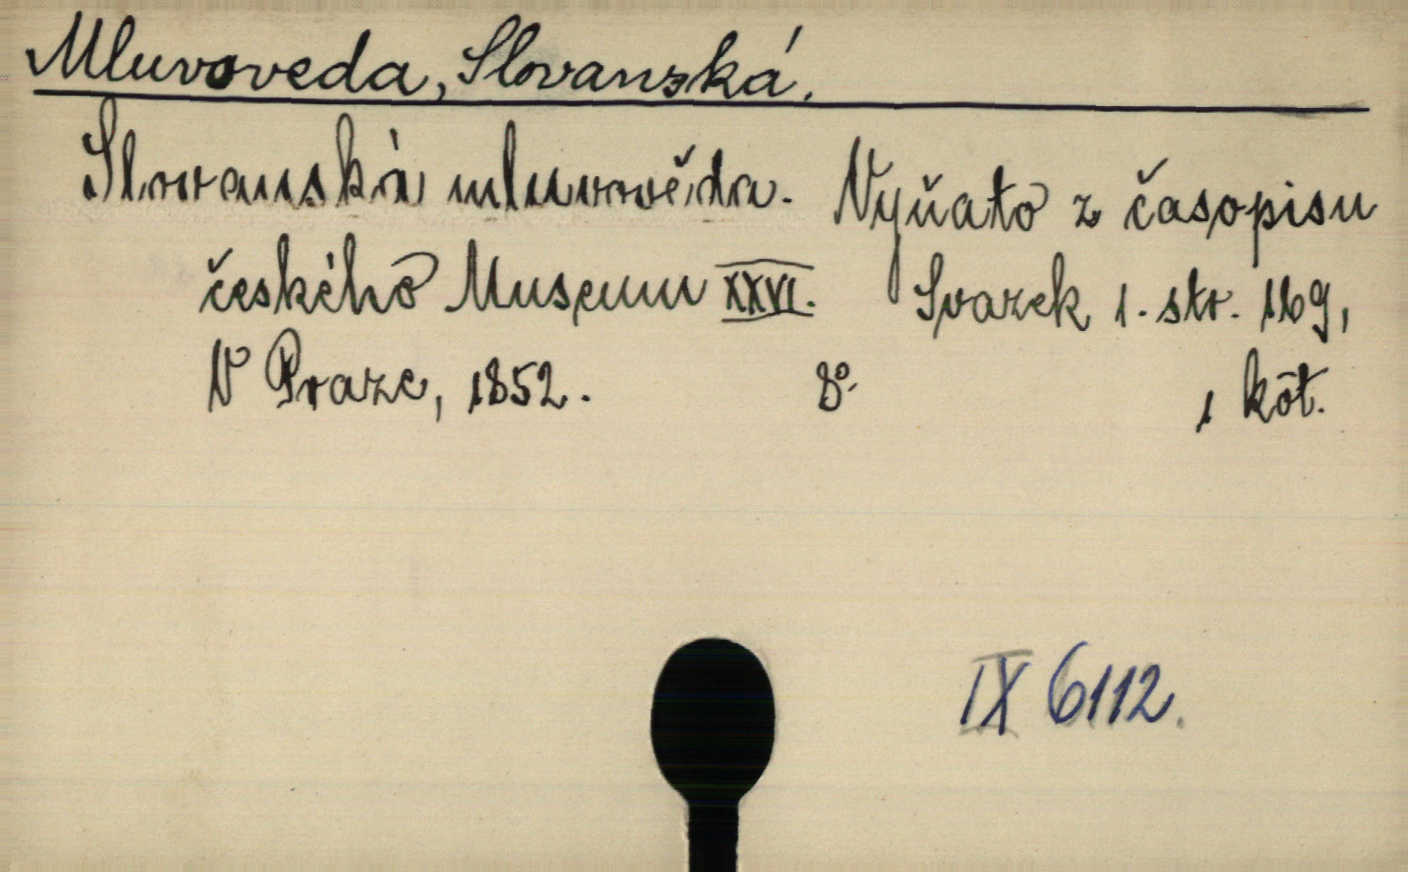 Mluvoveda, Slovanská.
Slovanská mluvověda. Vyňato z časopisu
českého Museum XXVI. Svazek 1. str. 169,
V Praze, 1852. 8° 1 köt.
IX 6112.